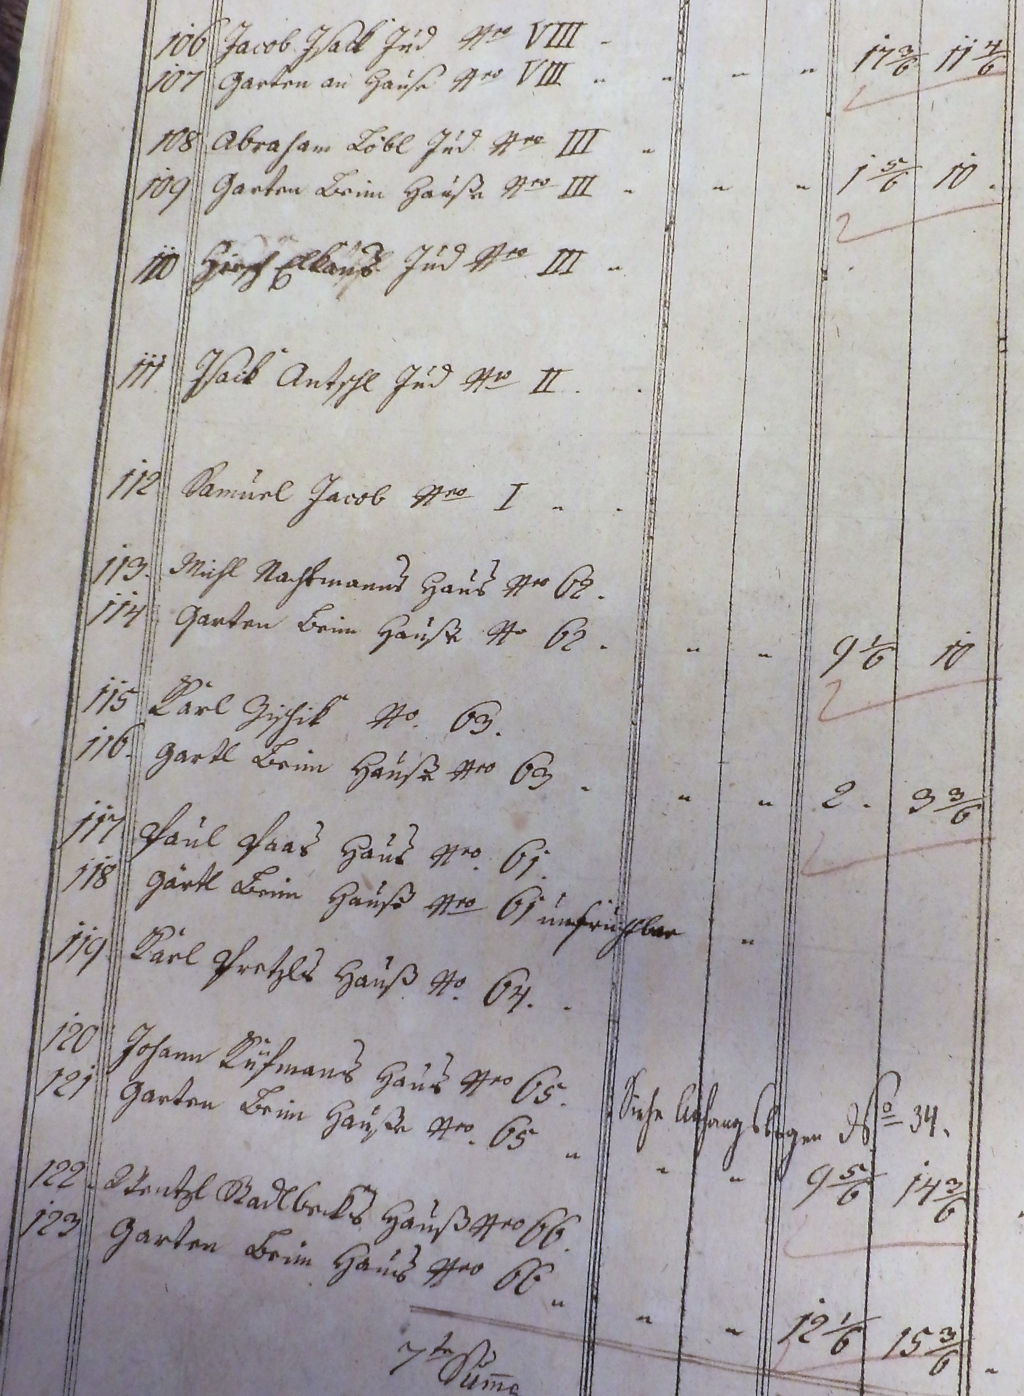 106 Jacob Isack Jud Nro VIII -
107 Garten an Hause Nro VIII " " " " 17 3/6 11 4/6
108 Abraham Löbl Jud Nro III "
109 Garten Beim Hauße Nro III " " " 1 5/6 10 .
110 Hirsch Elkaus Jud Nro III "
111 Isack Antschl Jud Nro II . .
112 Samuel Jacob Nro I " .
113. Michl Nachtmanns Haus Nro 62.
114 Garten Beim Hauße No 62. " " 9 1/6 10
115 Karl Zischik No. 63.
116. Gartl Beim Hauße Nro 63 . " " 2 . 3 3/6
117 Paul Paas Haus Nro. 61.
118 Gärtl Beim Hauße Nro 61 unfruchtbar "
119 Karl Pretzls Hauß No. 64. .
120 Johann Küfmans Haus Nro 65. Siehe Anhangsbogen No 34.
121 Garten Beim Hauße Nro. 65 " " " 9 5/6 14 3/6
122. Wentzl Stadlbecks Hauß Nro 66.
123 Garten Beim Haus Nro 66 " " " 12 1/6 15 3/6
7te Summe